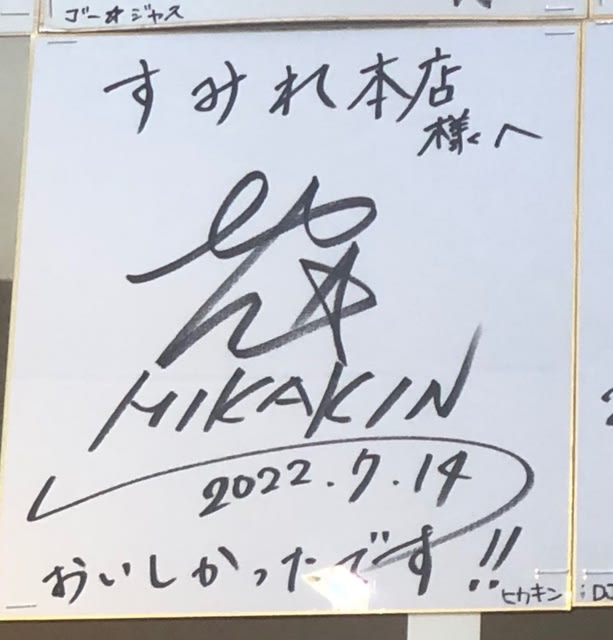 ゴー☆ジャス
すみれ本店
様へ
HIKAKIN
2022.7.14
おいしかったです!!
ヒカキン
:DJ